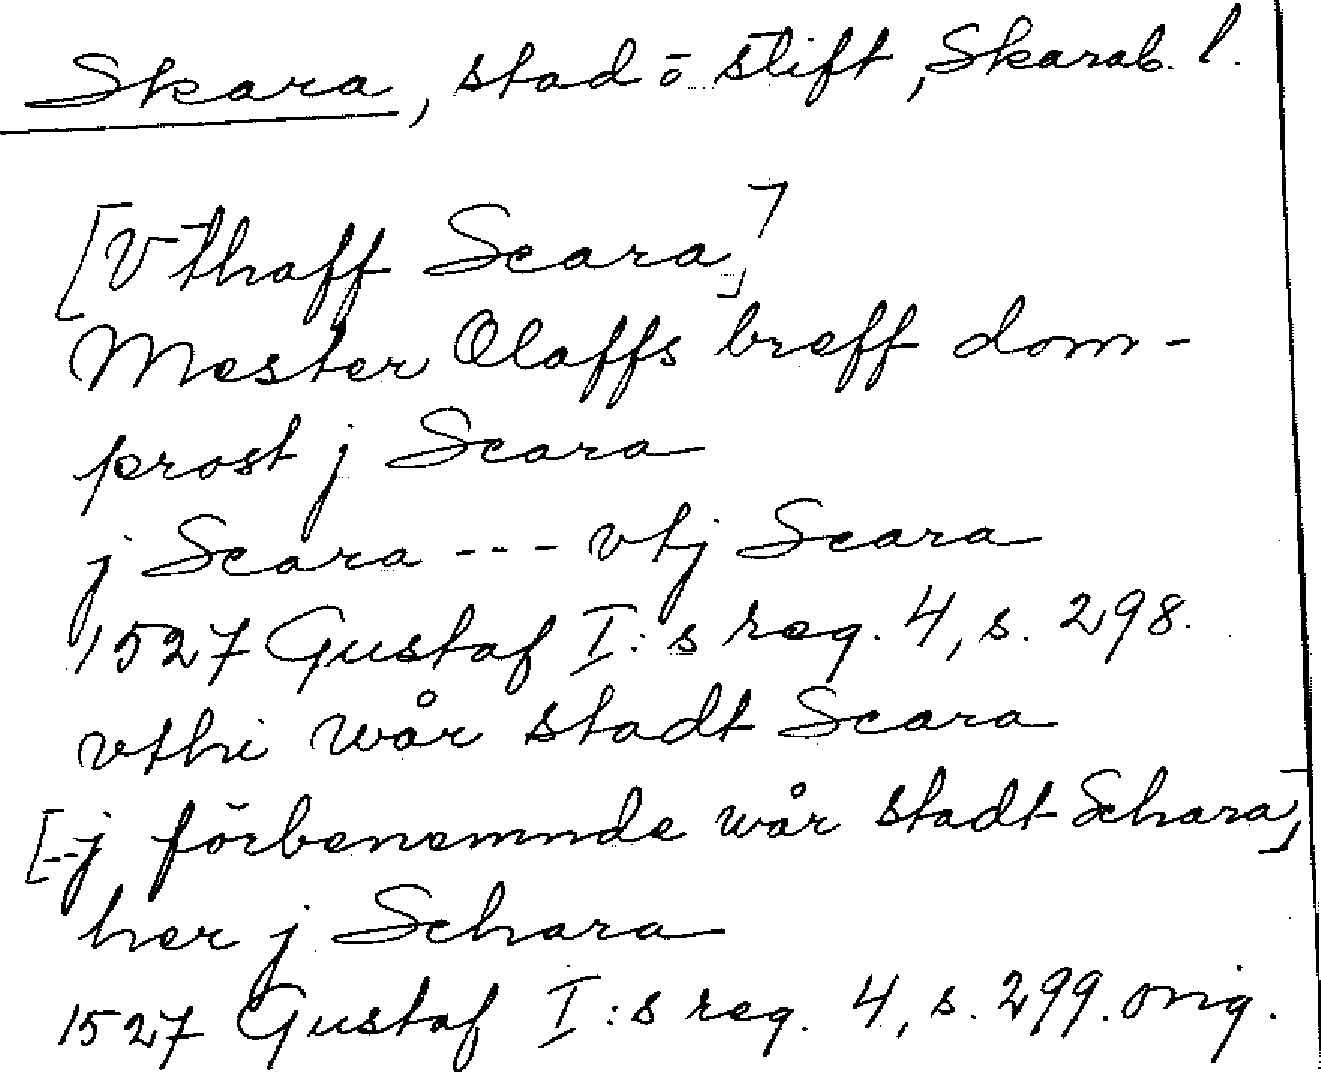 Skara, stad ō stift, Skarab. l.
[Vthaff Scara]
Mester Olaffs breff dom-
prost j Scara
j Scara --- vtj Scara
1527 Gustaf I:s reg. 4, s. 298.
vthi wår stadt Scara
[--j förbenemnde wår stadt Schara]
her j Schara
1527 Gustaf I:s reg. 4, s. 299. orig.